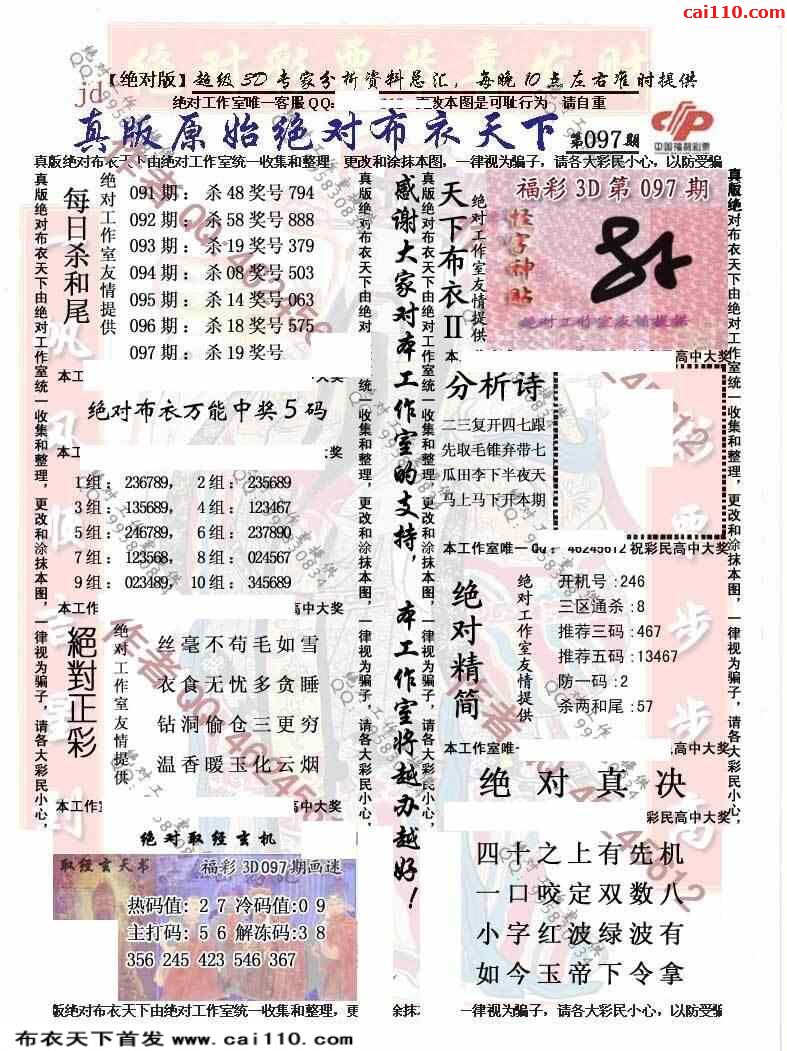 cai110.com
【绝对版】超级3D专家分析资料总汇，每晚10点左右准时提供
jd
绝对工作室唯一客服QQ:
改本图是可耻行为 请自重
真版原始绝对布衣天下
第097期
中国福利彩票
真版绝对布衣天下由绝对工作室统一收集和整理 更改和涂抹本图,一律视为骗子,请各大彩民小心,以防受骗
每日杀和尾
绝对工作室友情提供
091期:杀48奖号794
092期:杀58奖号888
093期:杀19奖号379
094期:杀08奖号503
095期:杀14奖号063
096期:杀18奖号575
097期:杀19奖号
本工
高中大奖
绝对布衣万能中奖5码
本工
中大奖
1组: 236789, 2组: 235689
3组: 135689, 4组: 123467
5组: 246789, 6组: 237890
7组: 123568, 8组: 024567
9组: 023489, 10组: 345689
本工作
高中大奖
絕對正彩
绝对工作室友情提供
丝毫不苟毛如雪
衣食无忧多贪睡
钻洞偷仓三更穷
温香暖玉化云烟
本工作室
高中大奖
绝对取经玄机
取经玄天书
福彩3D097期画迷
热码值: 2 7 冷码值:0 9
主打码: 5 6 解冻码:3 8
356 245 423 546 367
感谢大家对本工作室的支持,本工作室将越办越好!
天下布衣II
绝对工作室友情提供
福彩3D第097期
怪字神贴
绝对工作室友情提供
高中大奖
分析诗
二三复开四七跟
先取毛锥弃带七
瓜田李下半夜天
马上马下开本期
本工作室唯一QQ: 46245612祝彩民高中大奖
绝对精简
绝对工作室友情提供
开机号:246
三区通杀:8
推荐三码:467
推荐五码:13467
防一码:2
杀两和尾:57
本工作室唯一
民高中大奖
绝对真决
本工作室
彩民高中大奖
四十之上有先机
一口咬定双数八
小字红波绿波有
如今玉帝下令拿
真版绝对布衣天下由绝对工作室统一收集和整理,更改和涂抹本图,一律视为骗子,请各大彩民小心,
版绝对布衣天下由绝对工作室统一收集和整理,更
涂抹本
一律视为骗子,请各大彩民小心,以防受骗
布衣天下首发 www.cai110.com